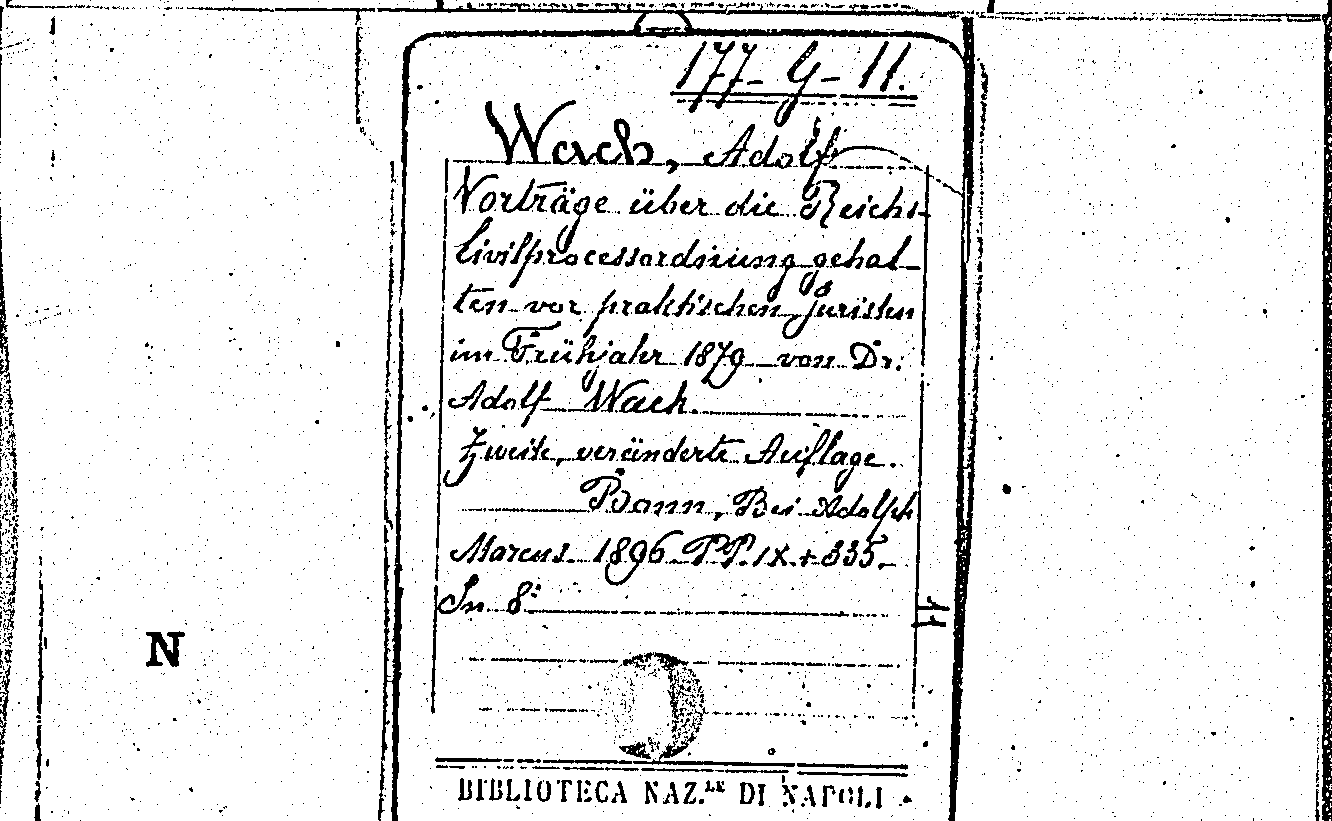 177-G-11.
Wach, Adolf
Vorträge über die Reichs-
Civilprocessordnung gehal-
ten vor praktischen Juristen
im Frühjahr 1879 von Dr.
Adolf Wach.
Zweite, veränderte Auflage.
Bonn, Bei Adolph
Marcus. 1896. PP. IX.+335.
In 8:
11
N
BIBLIOTECA NAZ.LE DI NAPOLI